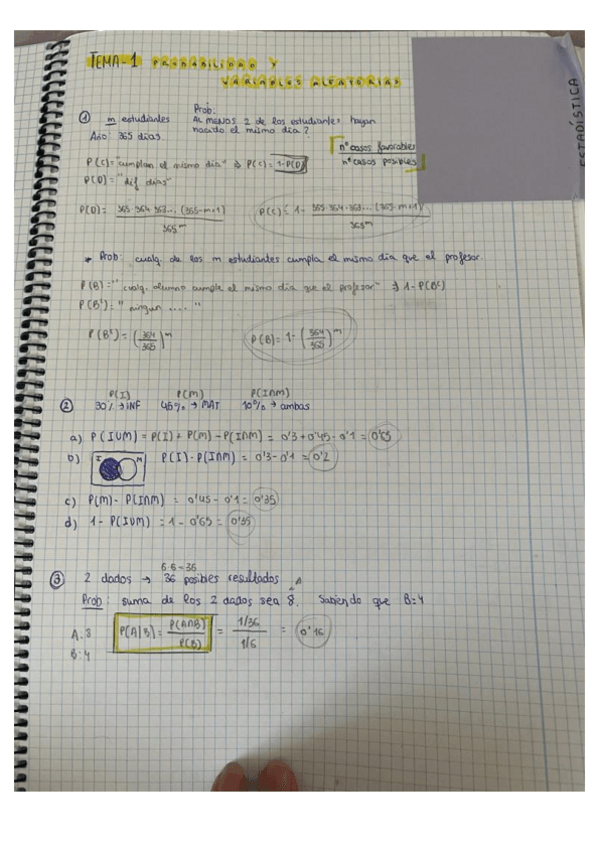 TEMA-1 PROBABILIDAD Y
VARIABLES ALEATORIAS
ESTADÍSTICA
① m estudiantes
Año: 365 días
Prob:
AL MENOS 2 de los estudiantes hayan
nacido el mismo día?
nº casos favorables
nº casos posibles
P(C)="cumplan el mismo día" → P(C)= 1-P(D)
P(D)= "dif días"
P(D)= 365·364·363...(365-m+1) / 365^m
P(C)= 1- 365·364·363...(365-m+1) / 365^m
* Prob: cualq. de los m estudiantes cumpla el mismo día que el profesor.
P(B)="cualq. alumno cumple el mismo día que el profesor" → 1-P(Bᶜ)
P(Bᶜ)= "ningun .... "
P(Bᶜ)= (364/365)^m
P(B)= 1-(364/365)^m
P(I) P(M) P(I∩M)
② 30% → INF 45% → MAT 10% → ambas
a) P(IUM) = P(I) + P(M) - P(I∩M) = 0'3 + 0'45 - 0'1 = 0'65
b) I M P(I) - P(I∩M) = 0'3 - 0'1 = 0'2
c) P(M) - P(I∩M) = 0'45 - 0'1 = 0'35
d) 1 - P(IUM) = 1 - 0'65 = 0'35
6·6=36
③ 2 dados → 36 posibles resultados
A
Prob: suma de los 2 dados sea 8. Sabiendo que B=4
A: 8
B: 4
P(A|B) = P(A∩B) / P(B) = 1/36 / 1/6 = 0'16